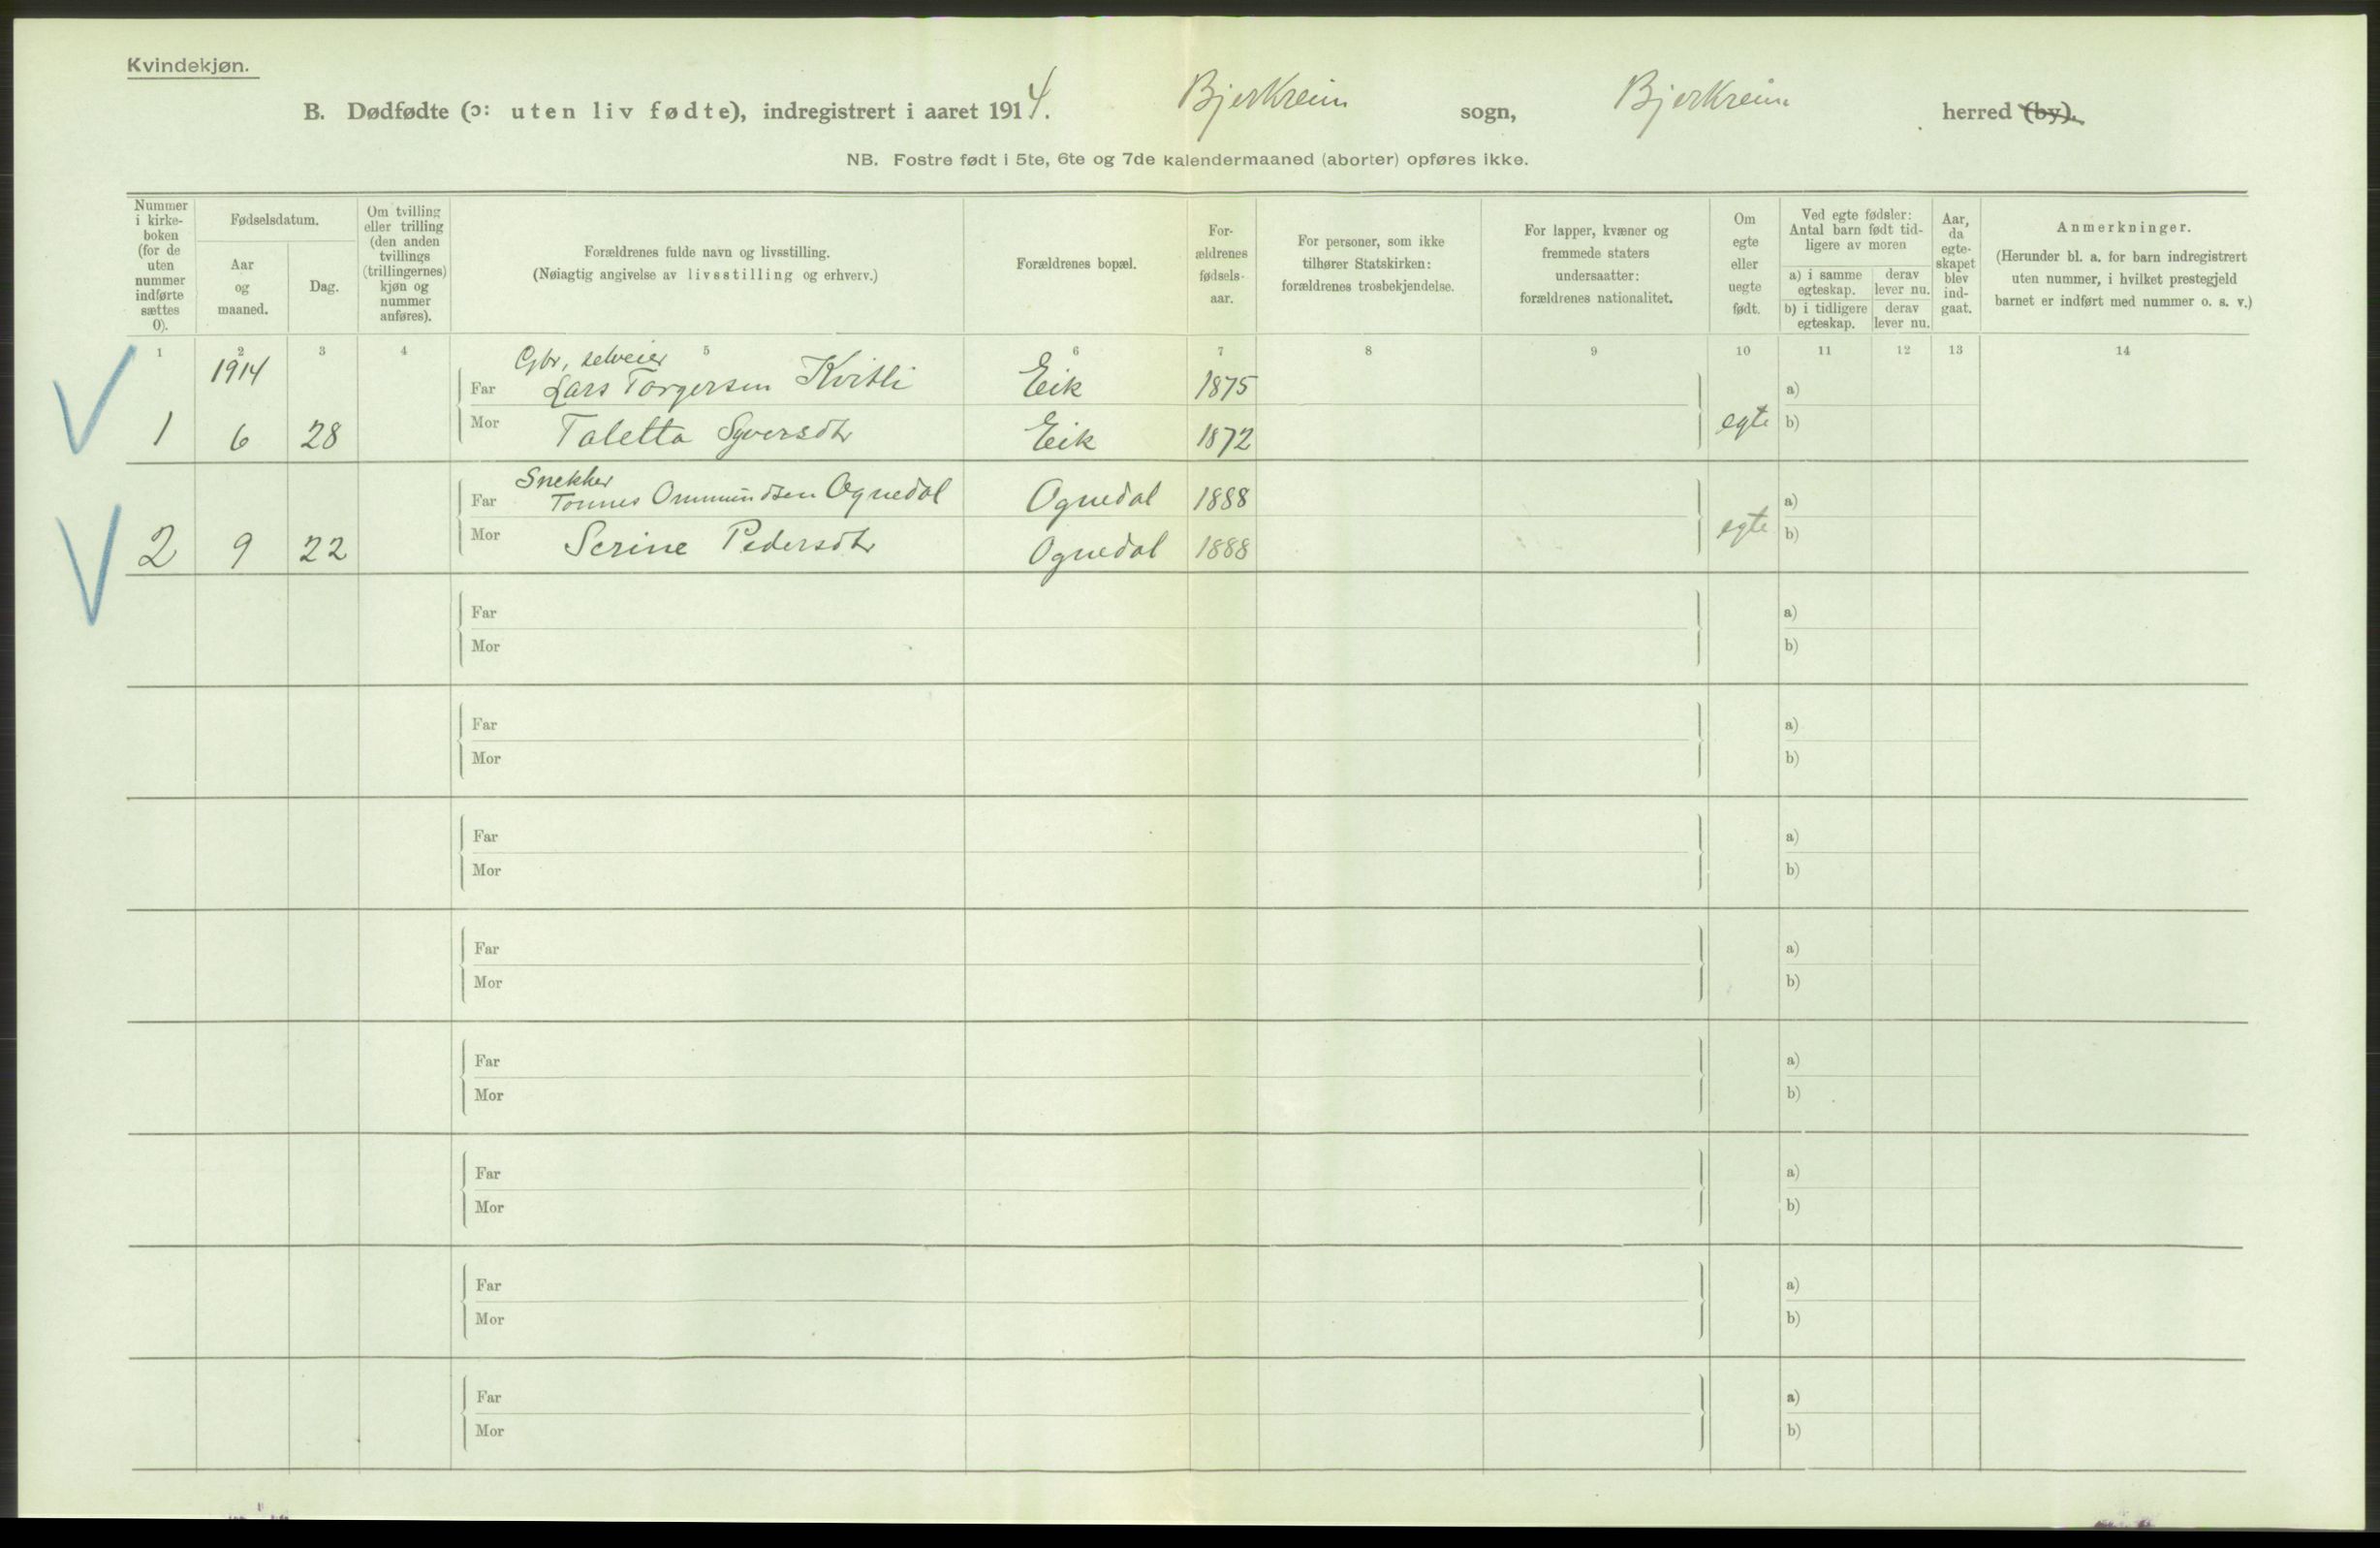 Kvindekjøn.
B. Dødfødte (ɔ: uten liv fødte), indregistrert i aaret 1914. Bjerkreim sogn, Bjerkreim herred (by).
NB. Fostre født i 5te, 6te og 7de kalendermaaned (aborter) opføres ikke.
Nummer
i kirke-
boken
(for de
uten
nummer
indførte
sættes
0).
Fødselsdatum.
Aar
og
maaned.
Dag.
Om tvilling
eller trilling
(den anden
tvillings
(trillingernes)
kjøn og
nummer
anføres).
Forældrenes fulde navn og livsstilling.
(Nøiagtig angivelse av livsstilling og erhverv.)
Forældrenes bopæl.
For-
ældrenes
fødsels-
aar.
For personer, som ikke
tilhører Statskirken:
forældrenes trosbekjendelse.
For lapper, kvæner og
fremmede staters
undersaatter:
forældrenes nationalitet.
Om
egte
eller
uegte
født.
Ved egte fødsler:
Antal barn født tid-
ligere av moren
a) i samme
egteskap.
derav
lever nu.
b) i tidligere
egteskap.
derav
lever nu.
Aar,
da
egte-
skapet
blev
ind-
gaat.
Anmerkninger.
(Herunder bl. a. for barn indregistrert
uten nummer, i hvilket prestegjeld
barnet er indført med nummer o. s. v.)
1 2 3 4 5 6 7 8 9 10 11 12 13 14
1914
Gbr, selveier
Far Lars Torgersen Kvitli Eik 1875 a)
1 6 28 Mor Taletta Syversdtr Eik 1872 egte b)
Snekker
Far Tønnes Ommundsen Ognedal Ognedal 1888 a)
2 9 22 Mor Serine Pedersdtr Ognedal 1888 egte b)
Far a)
Mor b)
Far a)
Mor b)
Far a)
Mor b)
Far a)
Mor b)
Far a)
Mor b)
Far a)
Mor b)
Far a)
Mor b)
Far a)
Mor b)